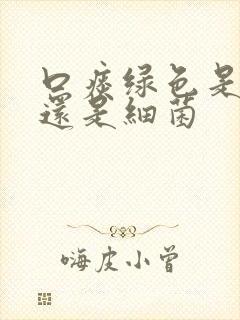 口痰绿色是
還是細菌
嗨皮小曾